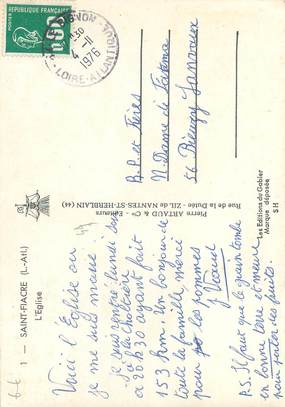 1 - SAINT-FIACRE (L.-Atl.)
L'Eglise
Voici l'Eglise où
je me suis marié
je suis rentré lundi soir
à la
à 20 h 30 ayant fait
153 km. Un bonjour de
toute la famille, merci
pour les pommes
P.S. Il faut que le grain tombe
en bonne terre et meure
pour porter des fruits.
Pierre ARTAUD & Cie - Editeurs
Rue de la Dutée - Z.I.L. de NANTES-ST-HERBLAIN (44)
Les Editions du Gabier
Marque déposée
S H
REPUBLIQUE FRANÇAISE
POSTES
0,60
4 -11
1976
LOIRE-ATLANTIQUE
R.P. et Frères
N. Dame de
56 Bieuzy Lanvaux